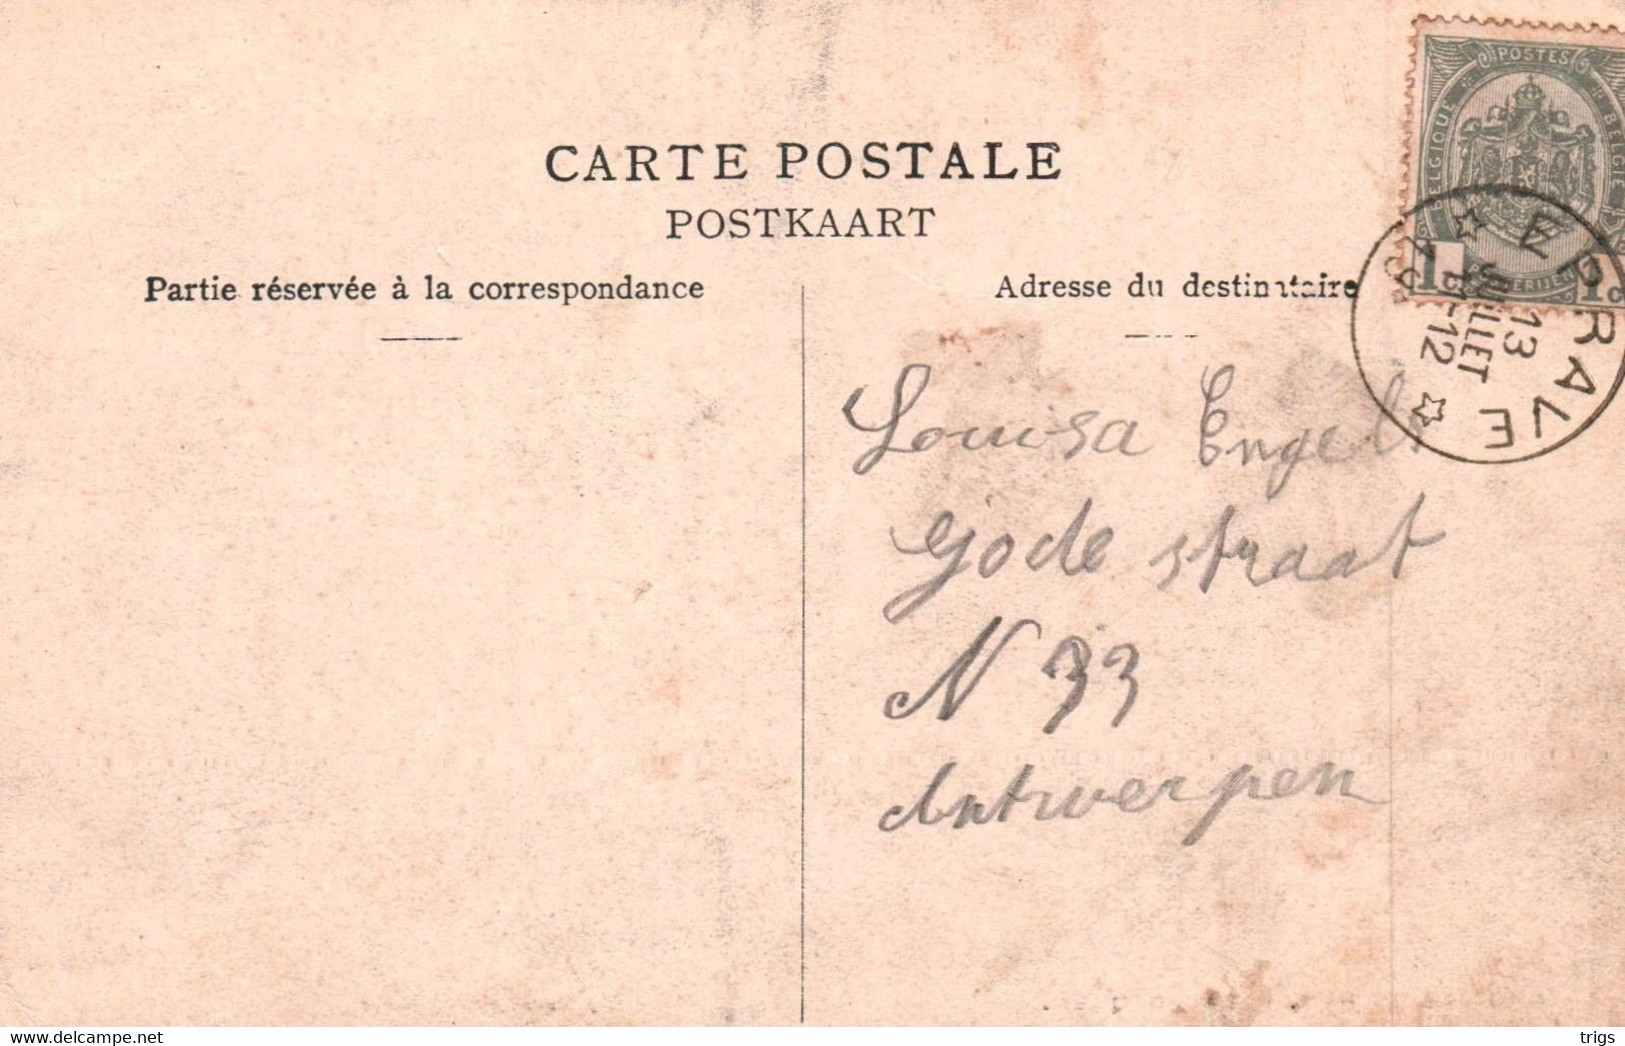 POSTES
BELGIQUE
BELGIË
1
1c
CARTE POSTALE
POSTKAART
Partie réservée à la correspondance
Adresse du destinataire
EPRAVE
13
JUILLET
11-12
Louisa Engels
Gode straat
N 33
Antwerpen
http://www.delcampe.net
trigs